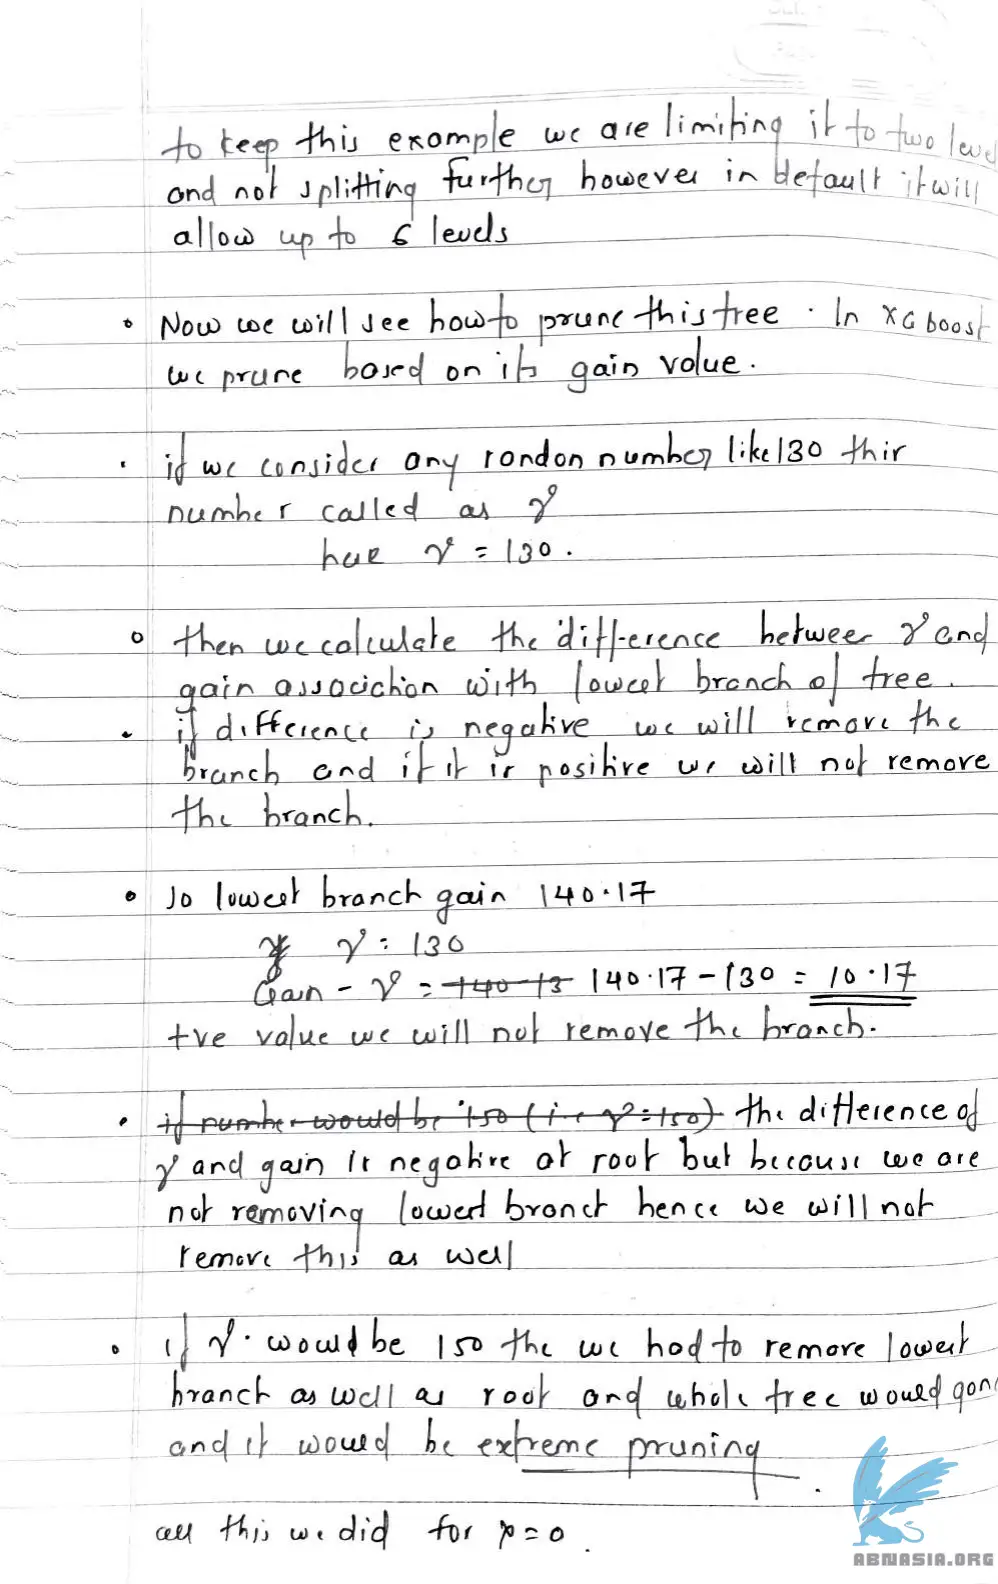 to keep this example we are limiting it to two level
and not splitting further however in default it will
allow up to 6 levels
• Now we will see how to prune this tree. In XGboost
we prune based on its gain value.
• if we consider any randon number like 130 this
number called as γ
here γ = 130.
• then we calculate the difference between γ and
gain association with lowest branch of tree.
• if difference is negative we will remove the
branch and if it is positive we will not remove
the branch.
• So lowest branch gain 140.17
γ = 130
Gain - γ = 140-13 140.17 - 130 = 10.17
+ve value we will not remove the branch.
• if number would be 150 (i.e γ = 150) the difference of
γ and gain is negative at root but because we are
not removing lowest branch hence we will not
remove this as well
• if γ. would be 150 the we had to remove lowest
branch as well as root and whole tree would gone
and it would be extreme pruning.
all this we did for = 0.
ABNASIA.ORG